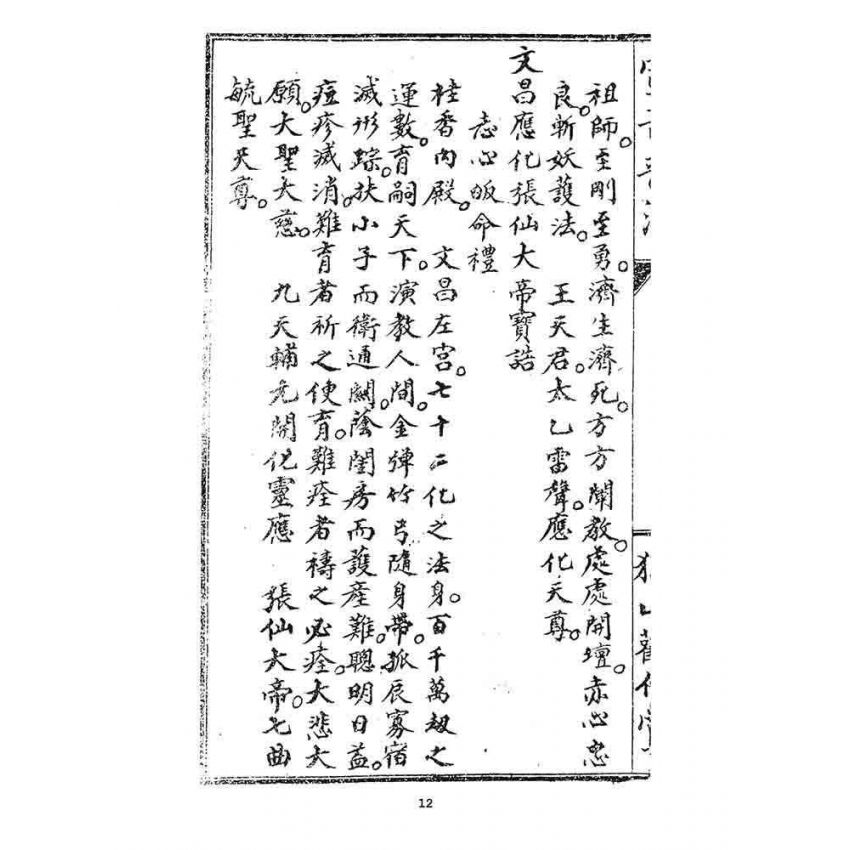 祖師。至剛至勇。濟生濟死。方方闡教。處處開壇。赤心忠
良。斬妖護法。 王天君。太乙雷聲。應化天尊。
文昌應化張仙大帝寶誥
志心皈命禮
桂香內殿。 文昌左宮。七十二化之法身。百千萬劫之
運數。育嗣天下。演教人間。金彈竹弓隨身帶。孤辰寡宿
滅形踪。扶小子而衛通關。蔭閨房而護產難。聰明日益。
痘疹滅消。難育者祈之便育。難痊者禱之必痊。大悲大
願。大聖大慈。 九天輔元開化靈應 張仙大帝。七曲
毓聖天尊。
12